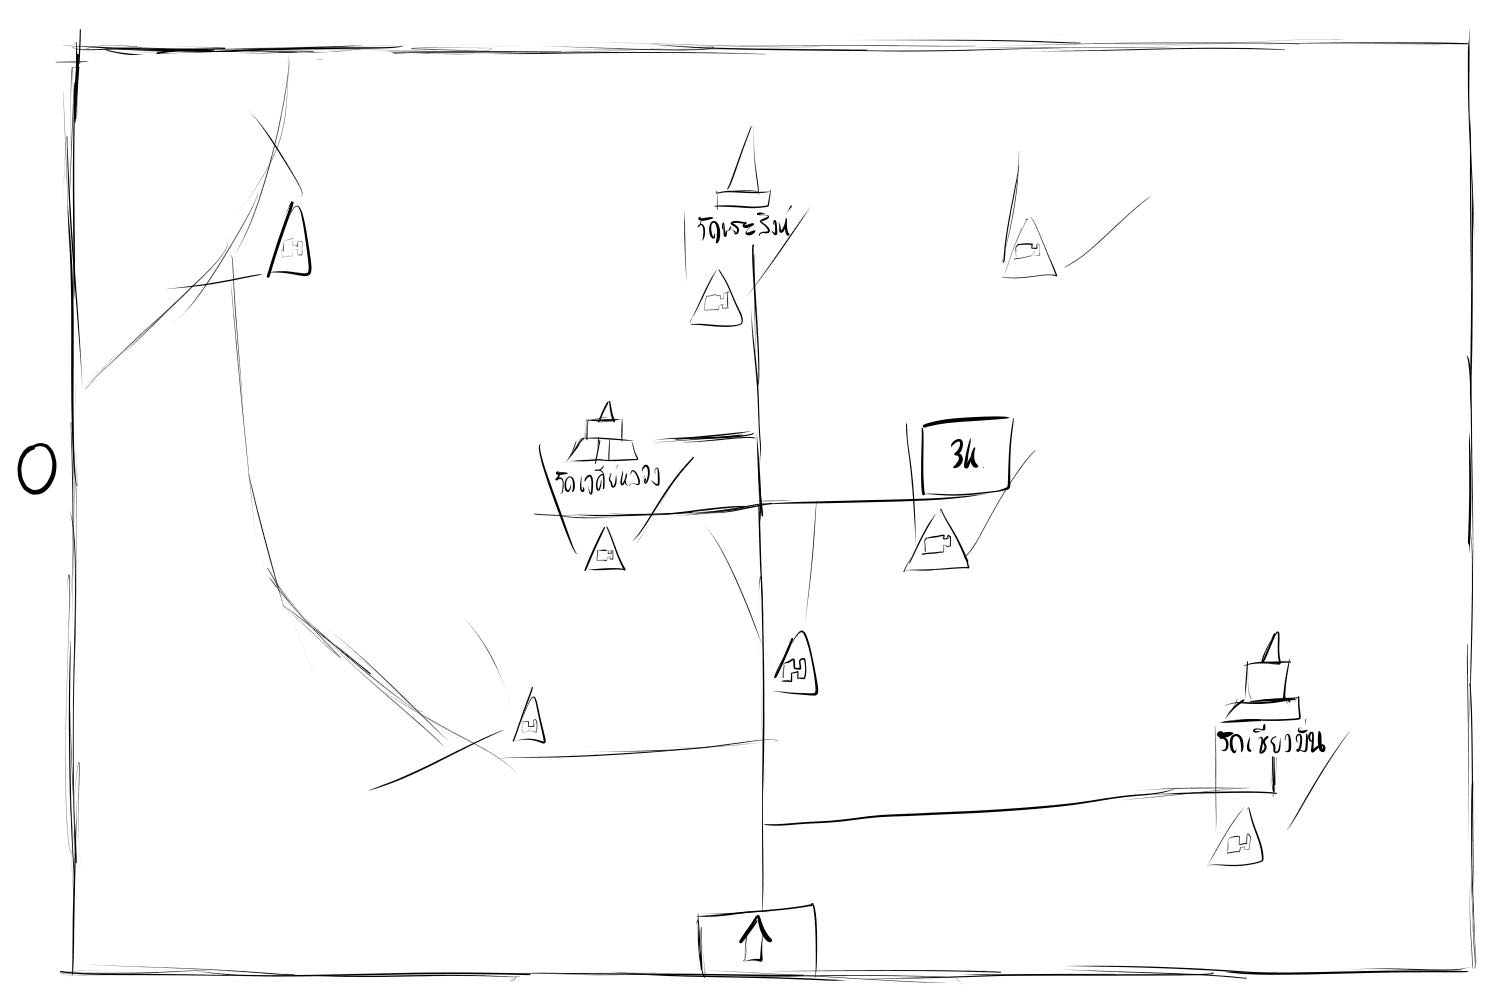 วัดพระสิงห์
วัดเจดีย์หลวง
3K
วัดเชียงมั่น